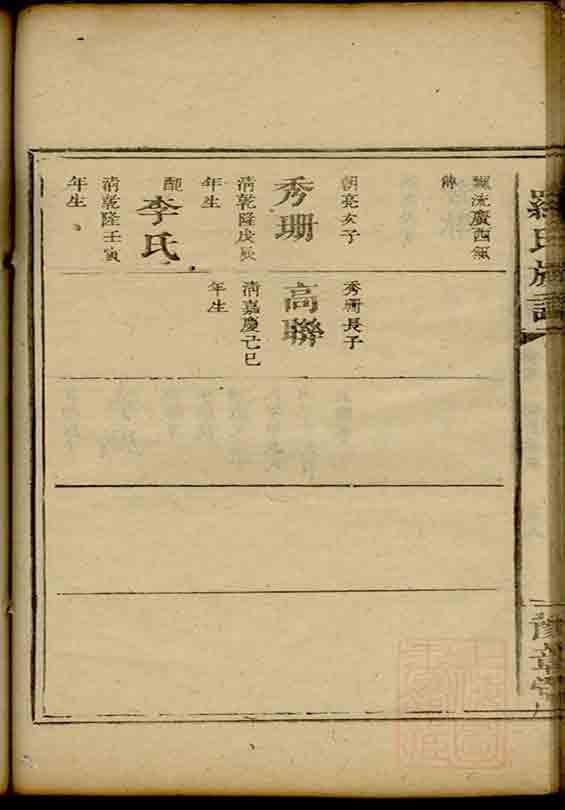 羅氏族譜
豫章堂
飄流廣西無
傳
朝亮次子
秀珊
清乾隆戊辰
年生
配
李氏
清乾隆壬寅
年生
秀珊長子
高聯
清嘉慶己巳
年生